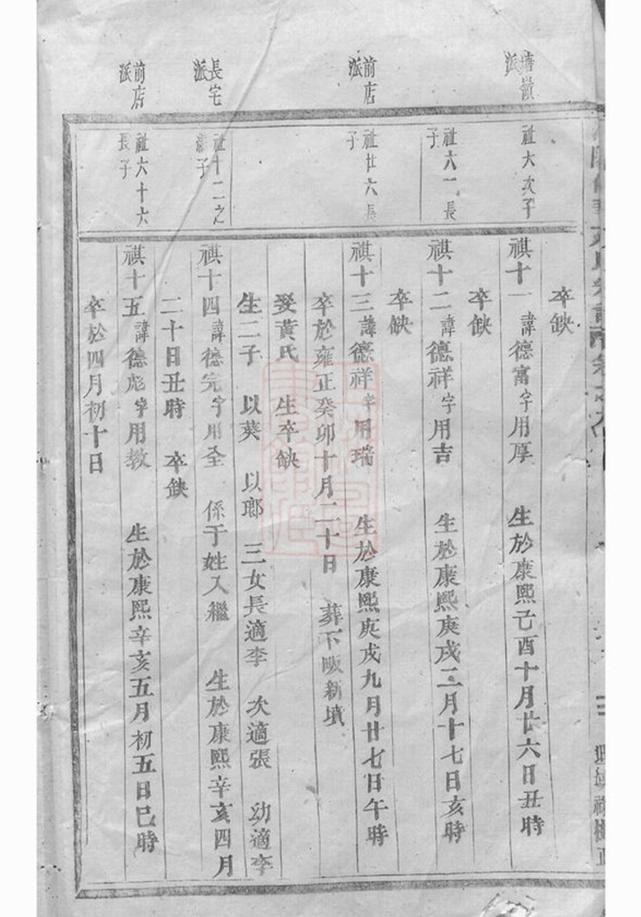 塘嶺
派
祉六次子
祺十一諱德富字用厚　生於康熙己酉十月廿六日丑時
卒缺
祉六一長
子
祺十二諱德祥字用吉　生於康熙庚戌二月十七日亥時
卒缺
前店
派
祉廿六長
子
祺十三諱德祥字用瑞　生於康熙庚戌九月廿七日午時
卒於雍正癸卯十月二十日　葬下畈新墳
娶黃氏　生卒缺
生二子　以葵　以瑯　三女長適李　次適張　幼適李
長宅
派
祉十二之
繼子
祺十四諱德完字用全　係于姓入繼　生於康熙辛亥四月
二十日丑時　卒缺
前店
派
祉六十六
長子
祺十五諱德彪字用教　生於康熙辛亥五月初五日巳時
卒於四月初十日